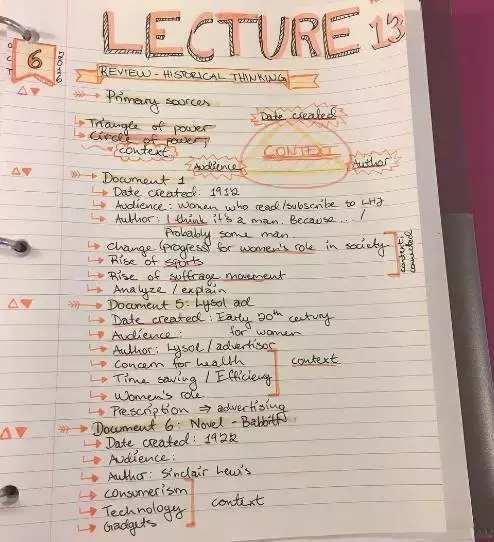 LECTURE 13
OCT 6 2016
REVIEW - HISTORICAL THINKING
Primary sources
Triangle of power
Circle of power
context
Date created
CONTEXT
Audience
Author
Document 1
Date created: 1912
Audience: Women who read/subscribe to LHJ
Author: I think it's a man. Because... /
Probably some man
Change (progress) for women's role in society
Rise of sports
Rise of suffrage movement
Analyze / explain
context connected
Document 5: Lysol ad
Date created: Early 20th century
Audience: for women
Author: Lysol / advertisor
Concern for health
Time saving / Efficieny
context
Women's role
Prescription ⇒ advertising
Document 6: Novel - Babbitt
Date created: 1922
Audience:
Author: Sinclair Lewis
consumerism
Technology
Gadgets
context